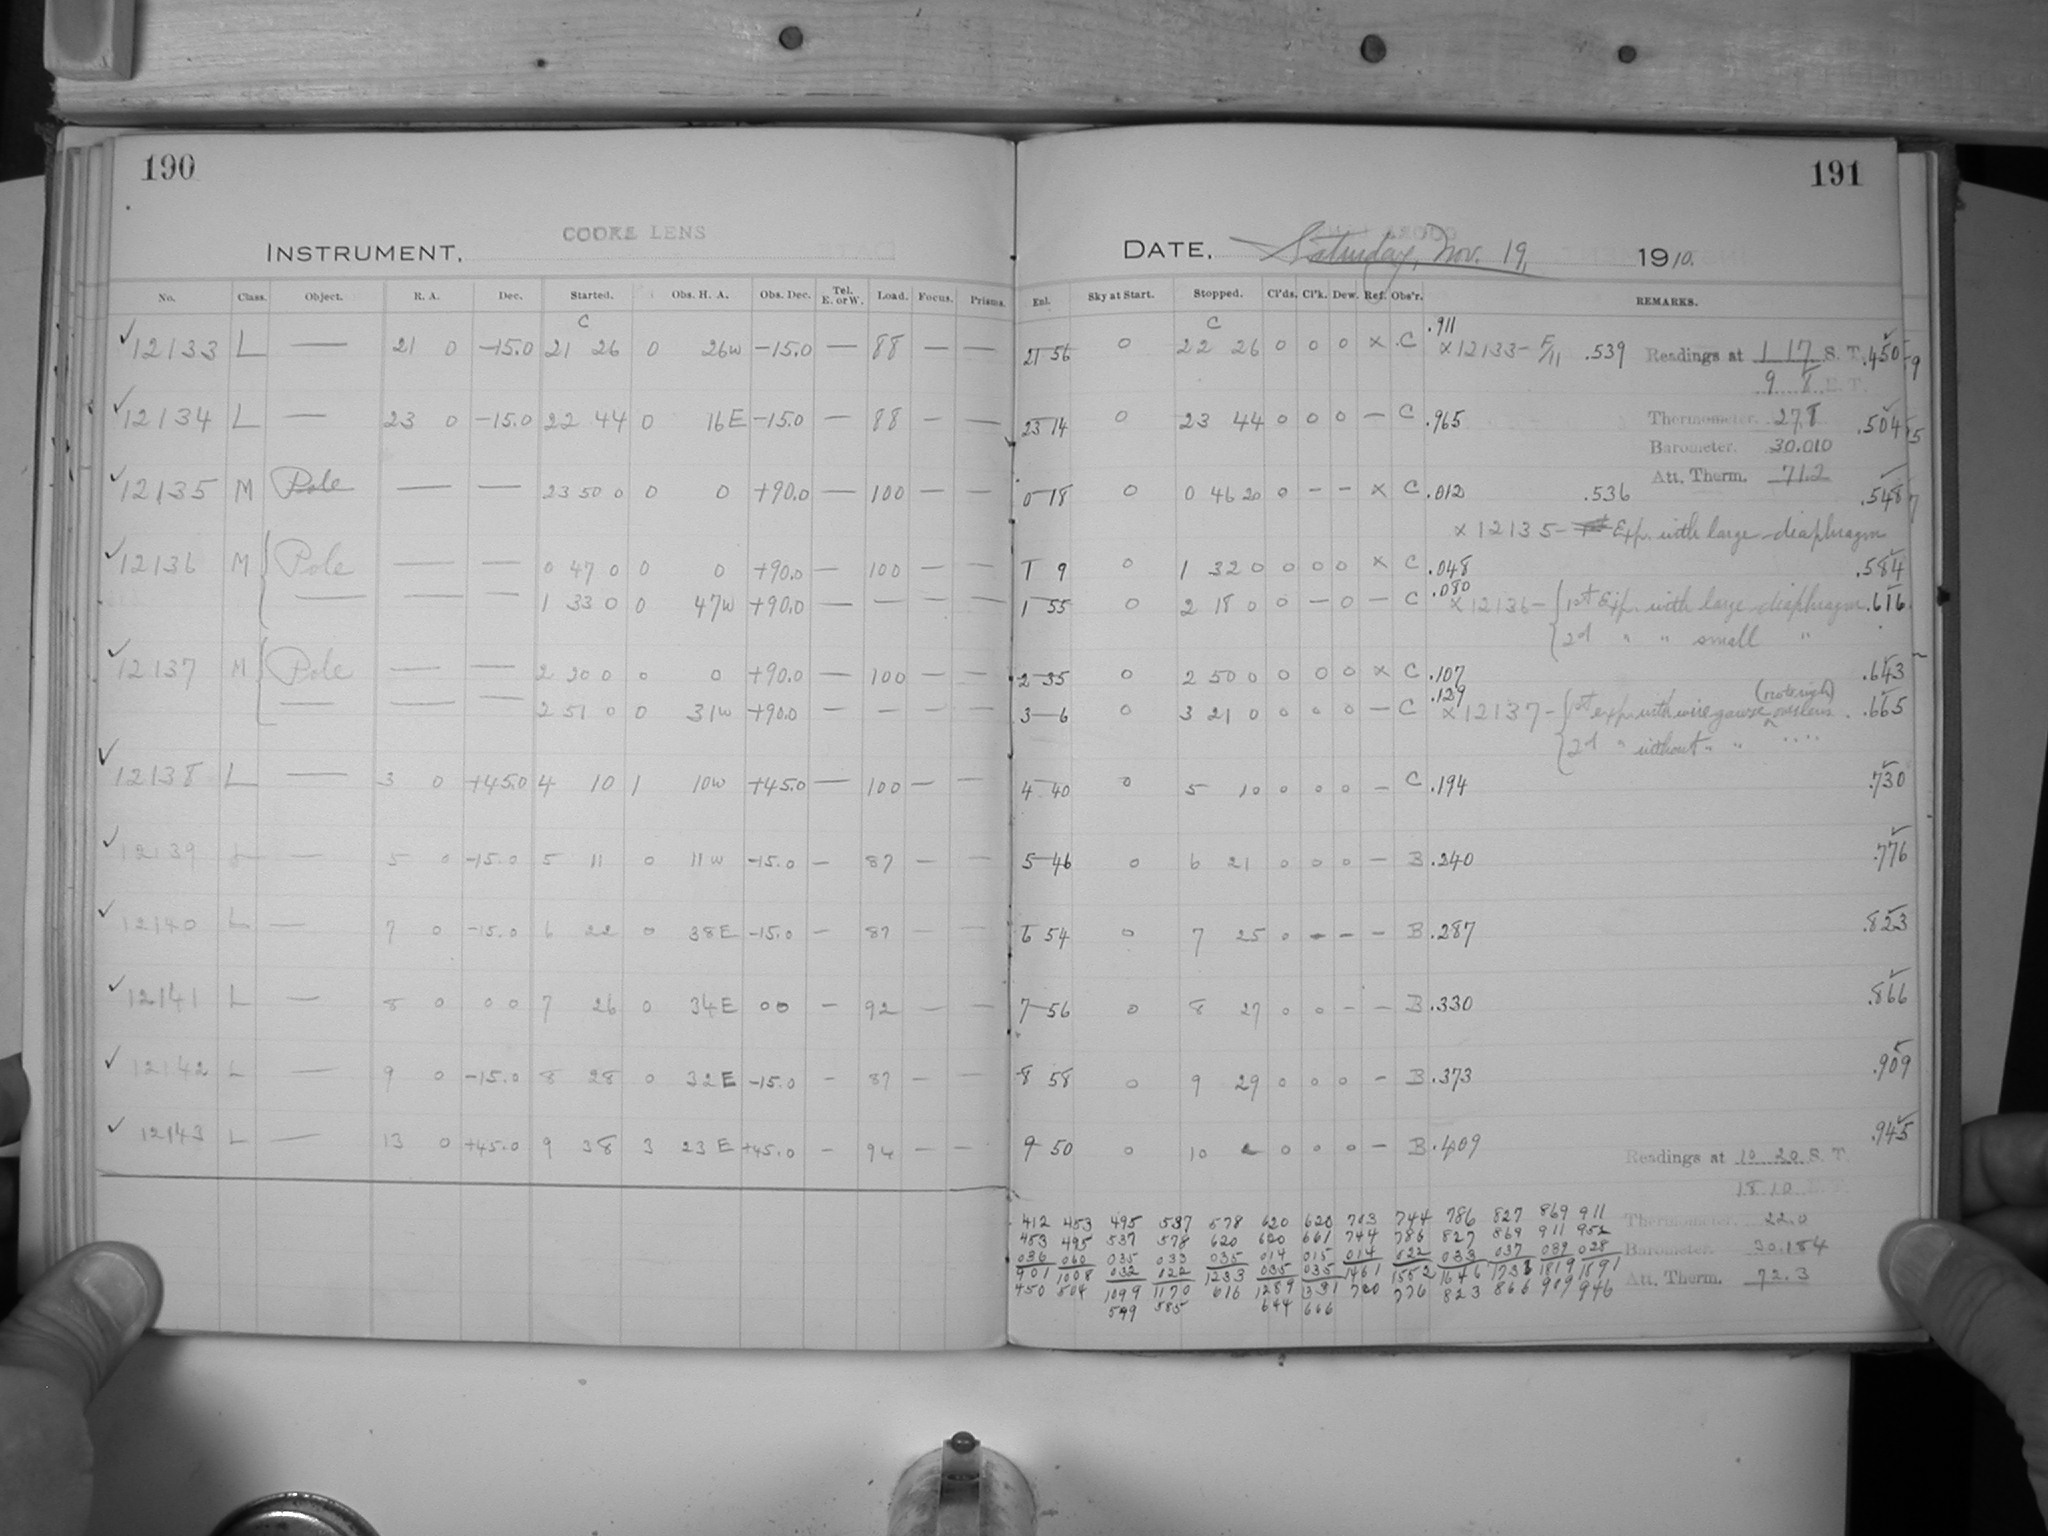 190
191
COOKE LENS
INSTRUMENT.
DATE. Saturday, Nov. 19, 1910.
No. Class. Object. R. A. Dec. Started. Obs. H. A. Obs. Dec. Tel. E. or W. Load. Focus. Prisms. Enl. Sky at Start. Stopped. Cl'ds. Cl'k. Dew. Ref. Obs'r. REMARKS.
C C .911
✓12133 L — 21 0 -15.0 21 26 0 26w -15.0 — 88 — — 21 56 0 22 26 0 0 0 x C x12133- F/11 .539 Readings at 1 17 S. T. .450
9 8 E. T.
✓12134 L — 23 0 -15.0 22 44 0 16E -15.0 — 88 — — 23 14 0 23 44 0 0 0 — C .965 Thermometer. 27.8 .504
Barometer. 30.010
Att. Therm. 71.2
✓12135 M Pole — — 23 50 0 0 0 +90.0 — 100 — — 0 18 0 0 46 20 0 — — x C .012 .536 .548
x 12135- Exp. with large diaphragm
✓12136 M Pole — — 0 47 0 0 0 +90.0 — 100 — — 1 9 0 1 32 0 0 0 0 x C .048 .584
— — — 1 33 0 0 47w +90.0 — — — — 1 55 0 2 18 0 0 — 0 — C .080 x12136- 1st Exp. with large diaphragm .616
2d " " small "
✓12137 M Pole — — 2 20 0 0 0 +90.0 — 100 — — 2 35 0 2 50 0 0 0 0 x C .107 .643
— — — 2 51 0 0 31w +90.0 — — — — 3 6 0 3 21 0 0 0 0 — C .129 x12137- 1st exp. with wire gauze over lens. .665
2d " without " " " "
✓12138 L — 3 0 +45.0 4 10 1 10w +45.0 — 100 — — 4 40 0 5 10 0 0 0 — C .194 .730
✓12139 L — 5 0 -15.0 5 11 0 11w -15.0 — 87 — — 5 46 0 6 21 0 0 0 — B .240 .776
✓12140 L — 7 0 -15.0 6 22 0 38E -15.0 — 87 — — 6 54 0 7 25 0 — — — B .287 .823
✓12141 L — 8 0 0 0 7 26 0 34E 0 0 — 92 — — 7 56 0 8 27 0 0 — — B .330 .866
✓12142 L — 9 0 -15.0 8 28 0 32E -15.0 — 87 — — 8 58 0 9 29 0 0 0 — B .373 .909
✓12143 L — 13 0 +45.0 9 38 3 23 E +45.0 — 94 — — 9 50 0 10 2 0 0 0 — B .409 .945
Readings at 10 20 S. T.
18 10 E. T.
412 453 495 537 578 620 620 703 744 786 827 869 911 Thermometer. 22.0
453 495 537 578 620 620 661 744 786 827 869 911 952
036 060 035 033 035 014 015 014 022 033 037 039 028 Barometer. 30.184
901 1008 032 022 1233 035 035 1461 1552 1646 1733 1819 1891 Att. Therm. 72.3
450 504 1099 1170 616 1289 1331 730 776 823 866 909 946
549 585 644 666